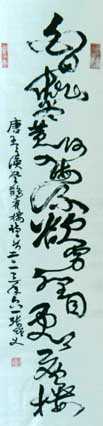 白日依山尽黄河入海流欲穷千里目更上一层楼
唐王之涣登鹳雀楼诗二〇一三年六一